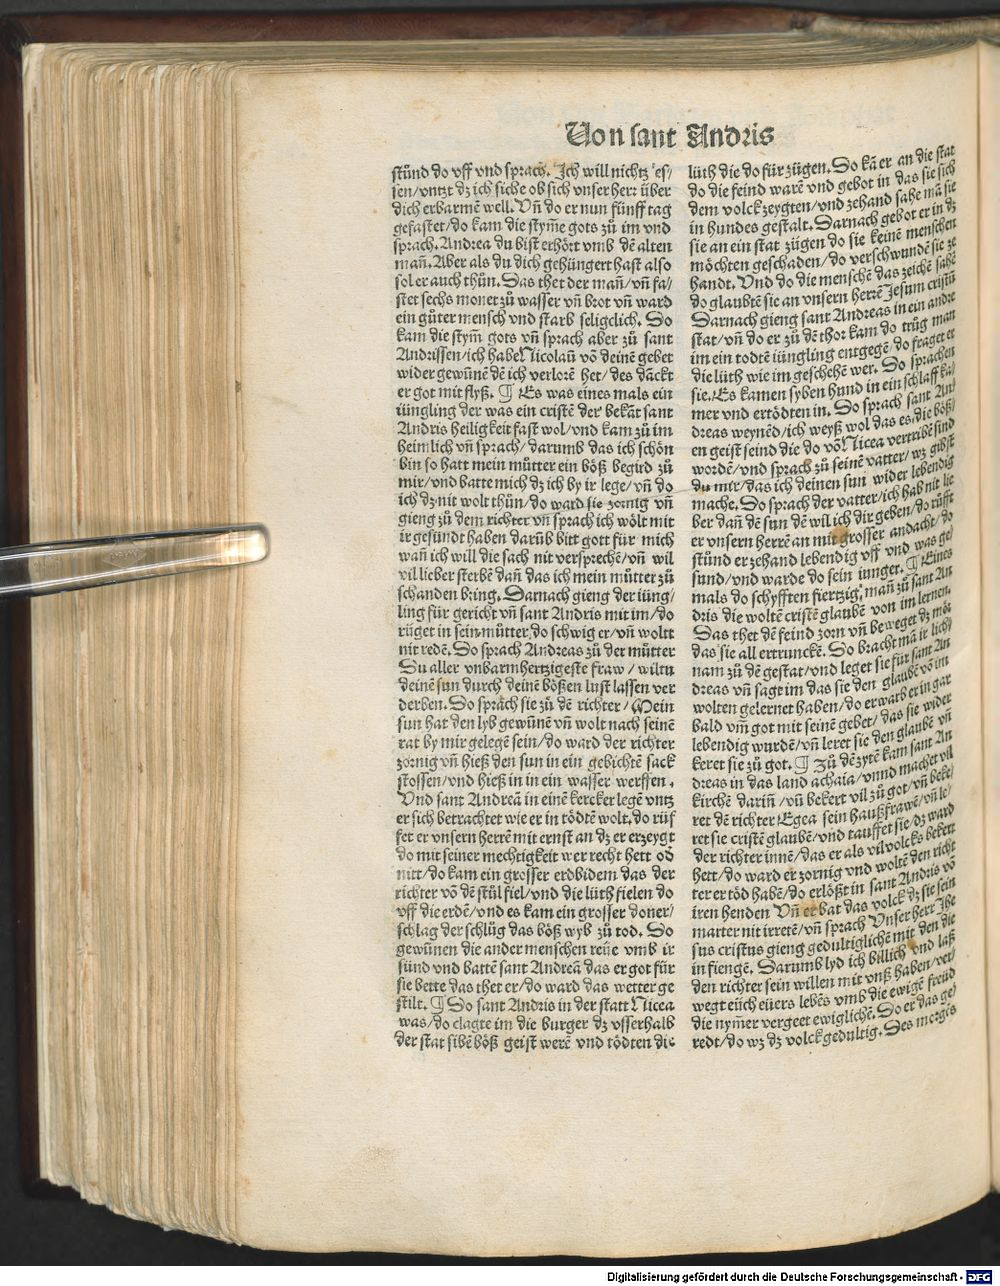 Von sant Andris
stůnd do vff vnd sprach. Ich will nichtz es/
sen/vntzt dz ich siche ob sich vnser herr über
dich erbarmē well. Vñ do er nun fünff tag
gefastet/do kam die stym̄e gots zů im vnd
sprach. Andrea du bist erhört vmb dē alten
mañ. Aber als du dich gehüngert hast also
sol er auch thůn. Das thet der mañ/vñ fa/
stet sechs monet zů wasser vñ brot vñ ward
ein gůter mensch vnd starb seligclich. Do
kam die stym̄ gots vñ sprach aber zů sant
Andrissen/ich habe Nicolaū võ deinē gebet
wider gewūnē dē ich verlorē het/des dāckt
er got mit flyß. ¶ Es was eines mals ein
iüngling der was ein cristē der bekāt sant
Andris heiligkeit fast wol/vnd kam zů im
heimlich vñ sprach/darumb das ich schön
bin so hatt mein můtter ein böß begird zů
mir/vnd batte mich dz ich by ir lege/vñ do
ich dz nit wolt thůn/do ward sie zornig vñ
gieng zů dem richter vñ sprach ich wölt mit
ir gesündt haben darūb bitt gott für mich
wañ ich will die sach nit versprechē/vñ wil
vil lieber sterbē dañ das ich mein můtter zů
schanden bring. Darnach gieng der iüng/
ling für gericht vñ sant Andris mit im/do
rüget in sein můtter/do schwig er/vñ woltt
nit redē. Do sprach Andreas zů der můtter
Du aller vnbarmhertzigeste fraw/wiltu
deinē sun durch deinē bößen lust lassen ver
derben. Do sprach sie zů dē richter/Mein
sun hat den lyb gewūnē vñ wolt nach seinē
rat by mir gelegē sein/do ward der richter
zornig vñ hieß den sun in ein gebichtē sack
stossen/vnd hieß in in ein wasser werffen.
Vnd sant Andreā in einē kercker legē vntz
er sich betrachtet wie er in tödtē wolt. do rüf
fet er vnsern herrē mit ernst an dz er erzeygt
do mit seiner mechtigkeit wer recht hett od
nitt/do kam ein grosser erdbidem das der
richter võ dē stůl fiel/vnd die lüth fielen do
vff die erdē/vnd es kam ein grosser doner/
schlag der schlůg das böß wyb zů tod. Do
gewūnen die ander menschen reüe vmb ir
sünd vnd battē sant Andreā das er got für
sie bette das thet er/do ward das wetter ge
stilt. ¶ Do sant Andris in der statt Nicea
was/do clagte im die burger dz vsserhalb
der stat sibē böß geist werē vnd tödten die
lüth die do für zügen. Do kā er an die stat
do die feind warē vnd gebot in das sie sich
dem volck zeygten/vnd zehand sahe mā sie
in hundes gestalt. Darnach gebot er in dz
sie an ein stat zügen do sie keinē menschen
möchten geschaden/do verschwundē sie ze
handt. Vnd do die menschē das zeichē sahē
do glaubtē sie an vnsern herrē Jesum cristū
Darnach gieng sant Andreas in ein andre
stat/vñ do er zů dē thor kam do trůg man
im ein todtē iüngling entgegē/do fraget er
die lüth wie im geschehē wer. Do sprachen
sie. Es kamen syben hund in ein schlaff ka/
mer vnd ertödten in. Do sprach sant An/
dreas weynēd/ich weyß wol das es die böß/
en geist seind die do võ Nicea vertribē sind
wordē/vnd sprach zů seinē vatter/wz gibst
du mir/das ich deinen sun wider lebendig
mache. Do sprach der vatter/ich hab nit lie
ber dañ dē sun dē wil ich dir gebē/do růfft
er vnsern herrē an mit grosser andacht/do
stůnd er zehand lebendig vff vnd was ge/
sund/vnd warde do sein iunger. ¶ Eines
mals do schyfften fiertzig mañ zů sant An
dris die woltē cristē glaubē von im lernen.
Das thet dē feind zorn vñ beweget dz mör
das sie all ertrunckē. Do bracht mā ir lich/
nam zů dē gestat/vnd leget sie für sant An
dreas vñ sagt im das sie den glaubē võ im
wolten gelernet haben/do erwarb er in gar
bald vm̄ got mit seinē gebet/das sie wider
lebendig wurdē/vñ leret sie den glaubē vñ
keret sie zů got. ¶ Zů dē zytē kam sant An
dreas in das land achaia/vnnd machet vil
kirchē dariñ/vñ bekert vil zů got/vñ beke/
ret dē richter Egea sein haußfrawē/vñ le/
ret sie cristē glaubē/vnd tauffet sie/dz ward
der richter innē/das er als vil volcks bekert
hett/do ward er zornig vnd woltē den richt
ter er töd habē/do erlößt in sant Andris võ
iren henden Vñ er bat das volck dz sie sein
marter nit irretē/vñ sprach Vnser herr Jhe
sus cristus gieng gedultiglichē mit den die
in fiengē. Darumb lyd ich billich vnd laß
den richter sein willen mit vnß haben/ver/
wegt eüch eüers lebēs vmb die ewigē freüd
die nym̄er vergeet ewiglichē. Do er das ge/
redt/do wz dz volck gedultig. Des morgēs
Digitalisierung gefördert durch die Deutsche Forschungsgemeinschaft - DFG